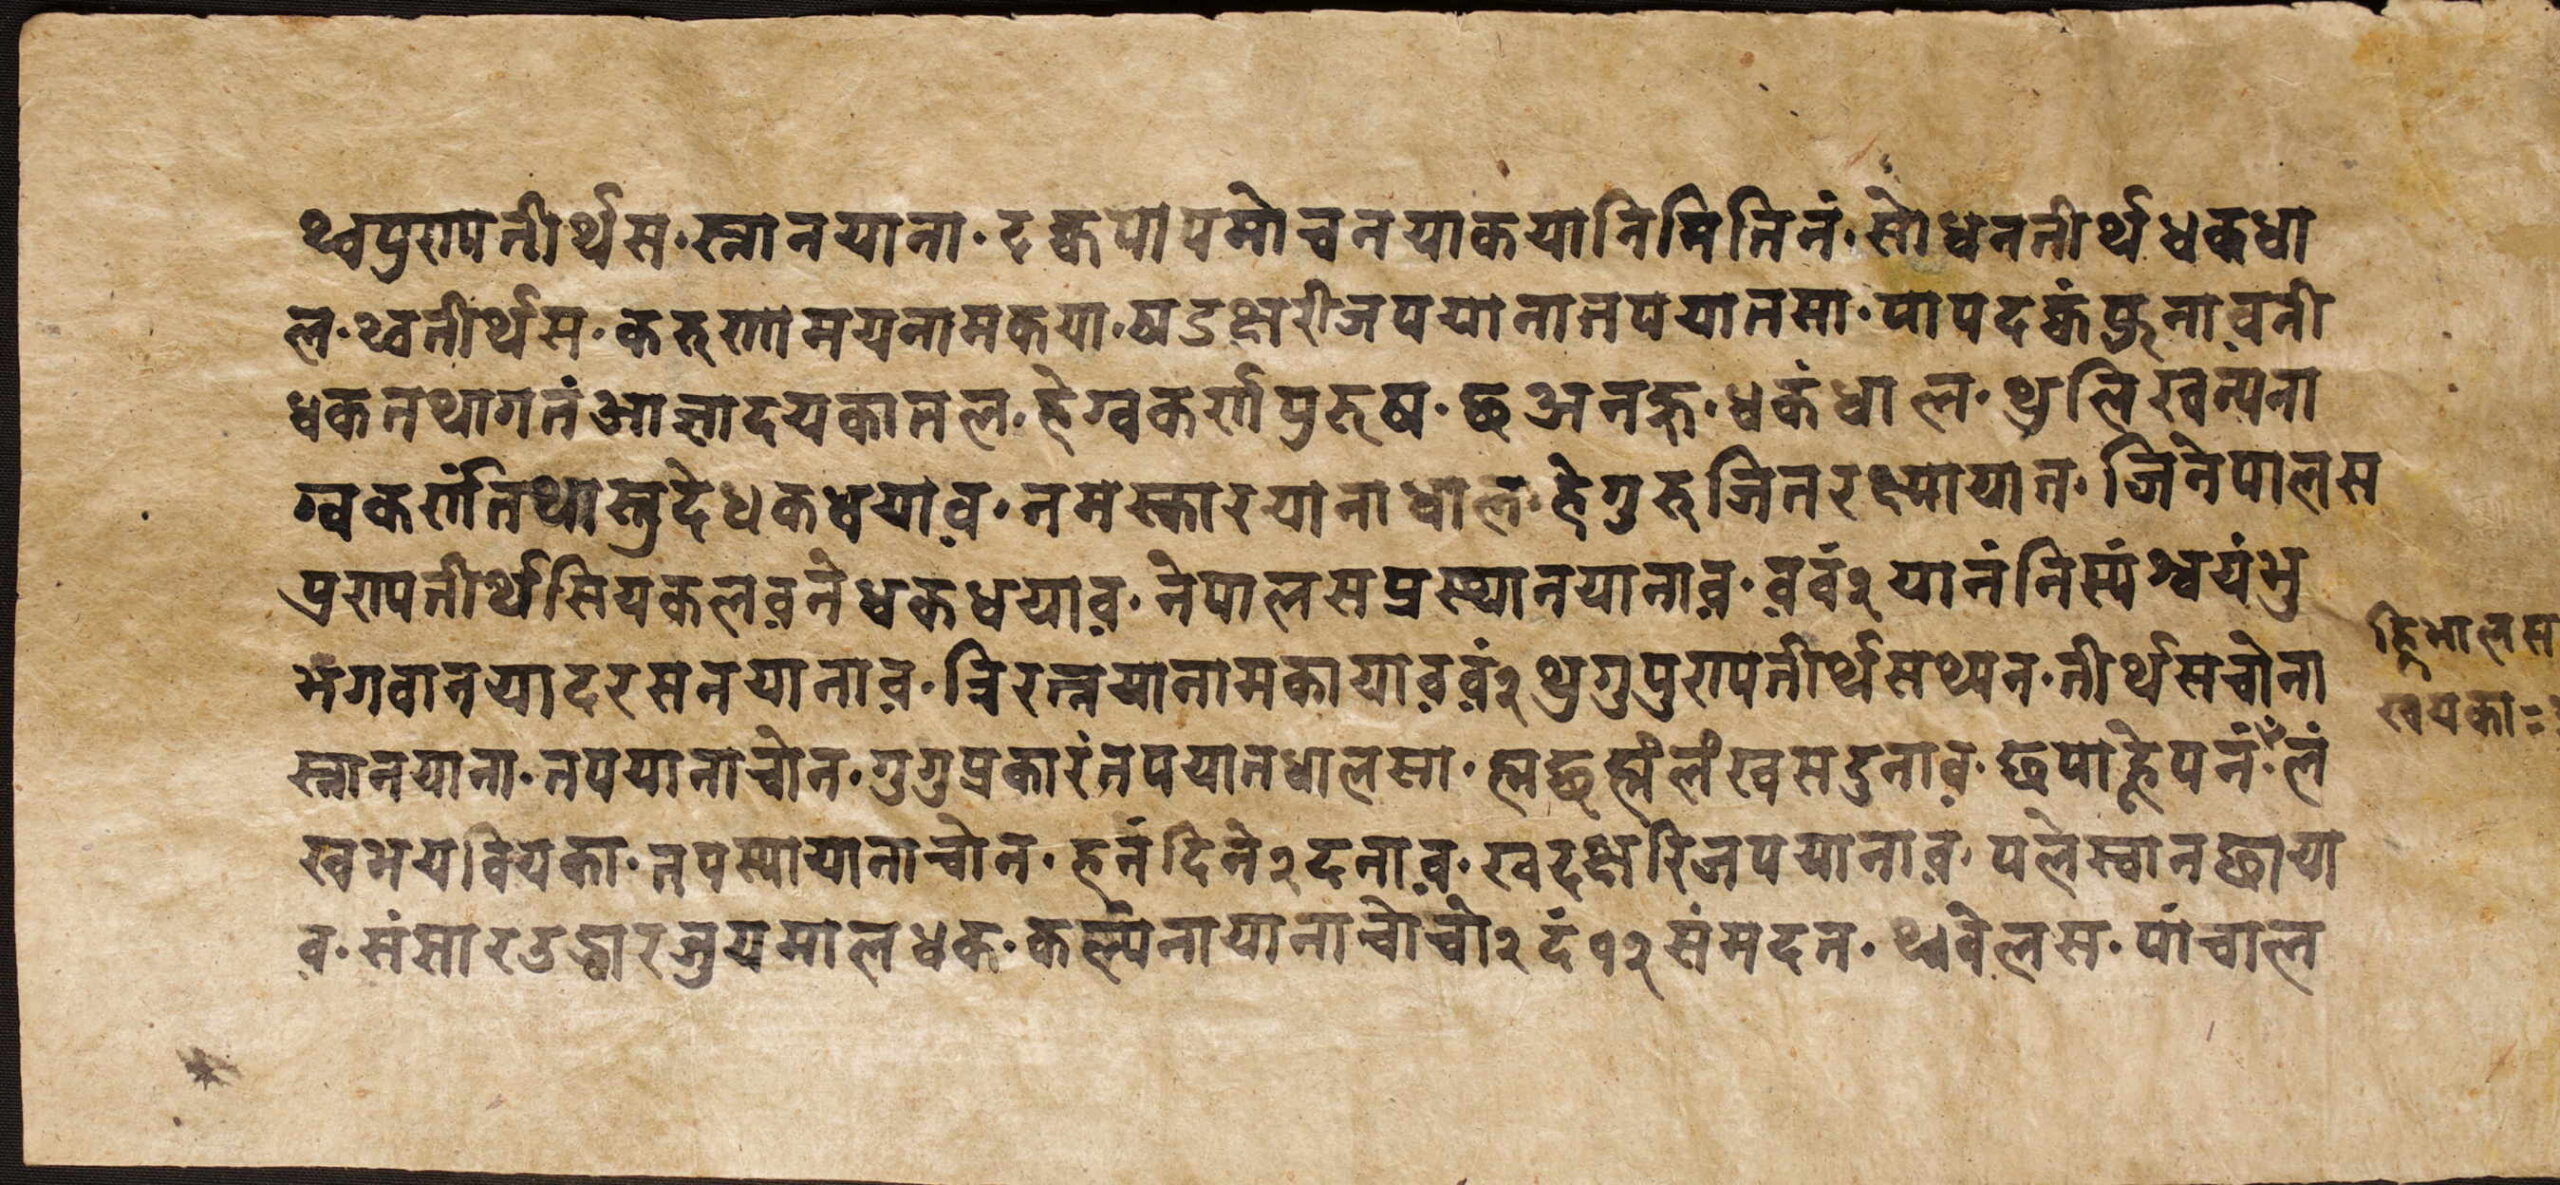 थ्वपुरापतीर्थस·स्नानयाना·दक्वपापमोचनयाकयानिमितिनं·सोधनतीर्थधकधा
ल·थ्वतीर्थस·करुणामयनामकया·षडक्षरीजपयानातपयातसा·पापदक्वंफुनावनी
धकतथागतंआज्ञादयकातल·हेग्वकर्णपुरुष·छअनहु·धकंधाल·थुलिखन्यना
ग्वकर्णंतिथास्तुदेधकधयाव·नमस्कारयानाधाल·हेगुरुजितरक्ष्यायात·जिनेपालस
पुरापतीर्थसियकलवनेधकधयाव·नेपालसप्रस्थानयानाव·ववं२यानंनिस्यंश्वयंभु
भगवानयादरसनयानाव·त्रिरत्नयानामकायाववं२थुगुपुरापतीर्थसथ्यन·तीर्थसचोना
स्नानयाना·तपयानाचोन·गुगुप्रकारंतपयातधालसा·ह्मछह्मंलंखसदुनाव·छपाहेपनं·लं
खभयवियका·तपस्यायानाचोन·हनंदिने२दनाव·खदक्षरिजपयानाव·पलेस्वानछाया
व·संसारउद्धारजुयमालधक·कल्पनायानाचोचो२दं१२संमदत·थ्ववेलस·पांचाल
ह्निभालस
खयका